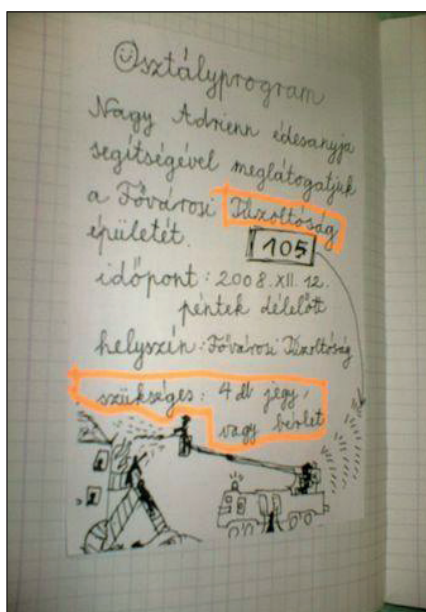 Osztályprogram
Nagy Adrienn édesanyja
segítségével meglátogatjuk
a Fővárosi Tűzoltóság
épületét.
105
időpont: 2008. XII. 12.
péntek délelőtt
helyszín: Fővárosi Tűzoltóság
szükséges: 4 db jegy,
vagy bérlet